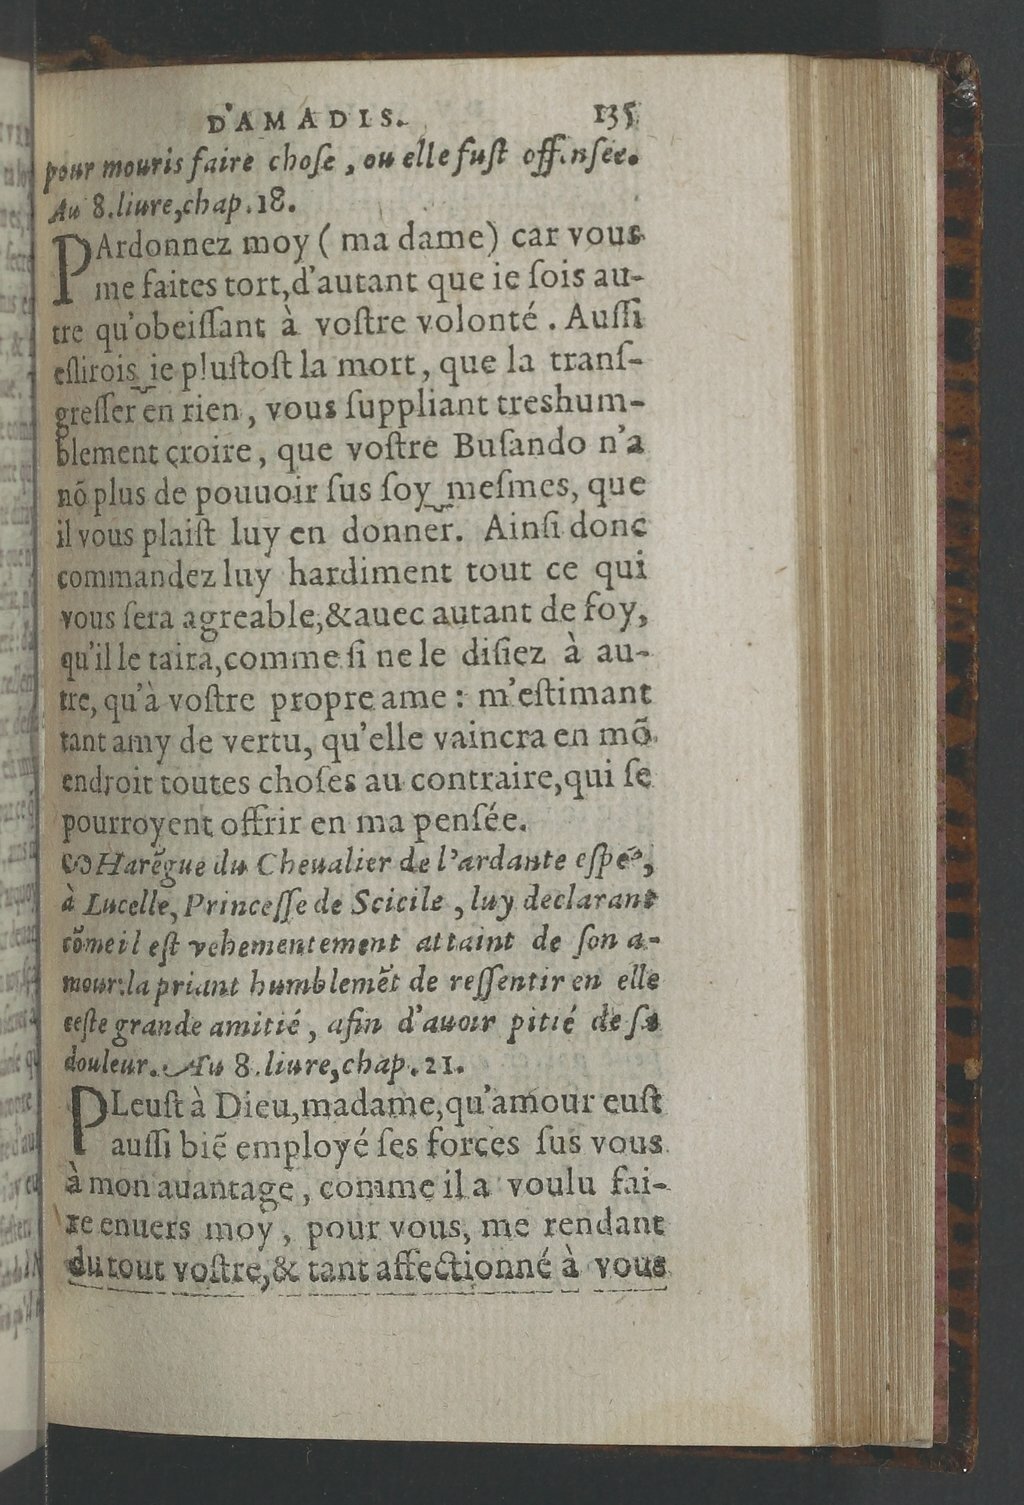 D'AMADIS. 135
pour mouris faire chose, ou elle fust offensée.
Au 8. liure, chap. 18.
PArdonnez moy (ma dame) car vous
me faites tort, d'autant que ie ſois au-
tre qu'obeiſſant à voſtre volonté. Auſſi
eſlirois ie pluſtoſt la mort, que la tranſ-
greſſer en rien, vous ſuppliant treshum-
blement croire, que voſtre Buſando n'a
nõ plus de pouuoir ſus ſoy meſmes, que
il vous plaiſt luy en donner. Ainſi donc
commandez luy hardiment tout ce qui
vous ſera agreable, & auec autant de foy,
qu'il le taira, comme ſi ne le diſiez à au-
tre, qu'à voſtre propre ame : m'eſtimant
tant amy de vertu, qu'elle vaincra en mõ
endroit toutes choſes au contraire, qui ſe
pourroyent offrir en ma penſée.
Harẽgue du Cheualier de l'ardante eſpée,
à Lucelle, Princeſſe de Scicile, luy declarant
cõme il eſt vehementement attaint de ſon a-
mour: la priant humblemẽt de reſſentir en elle
ceſte grande amitié, afin d'auoir pitié de ſa
douleur. Au 8. liure, chap. 21.
PLeuſt à Dieu, madame, qu'amour euſt
auſſi biẽ employé ſes forces ſus vous
à mon auantage, comme il a voulu fai-
re enuers moy, pour vous, me rendant
du tout voſtre, & tant affectionné à vous